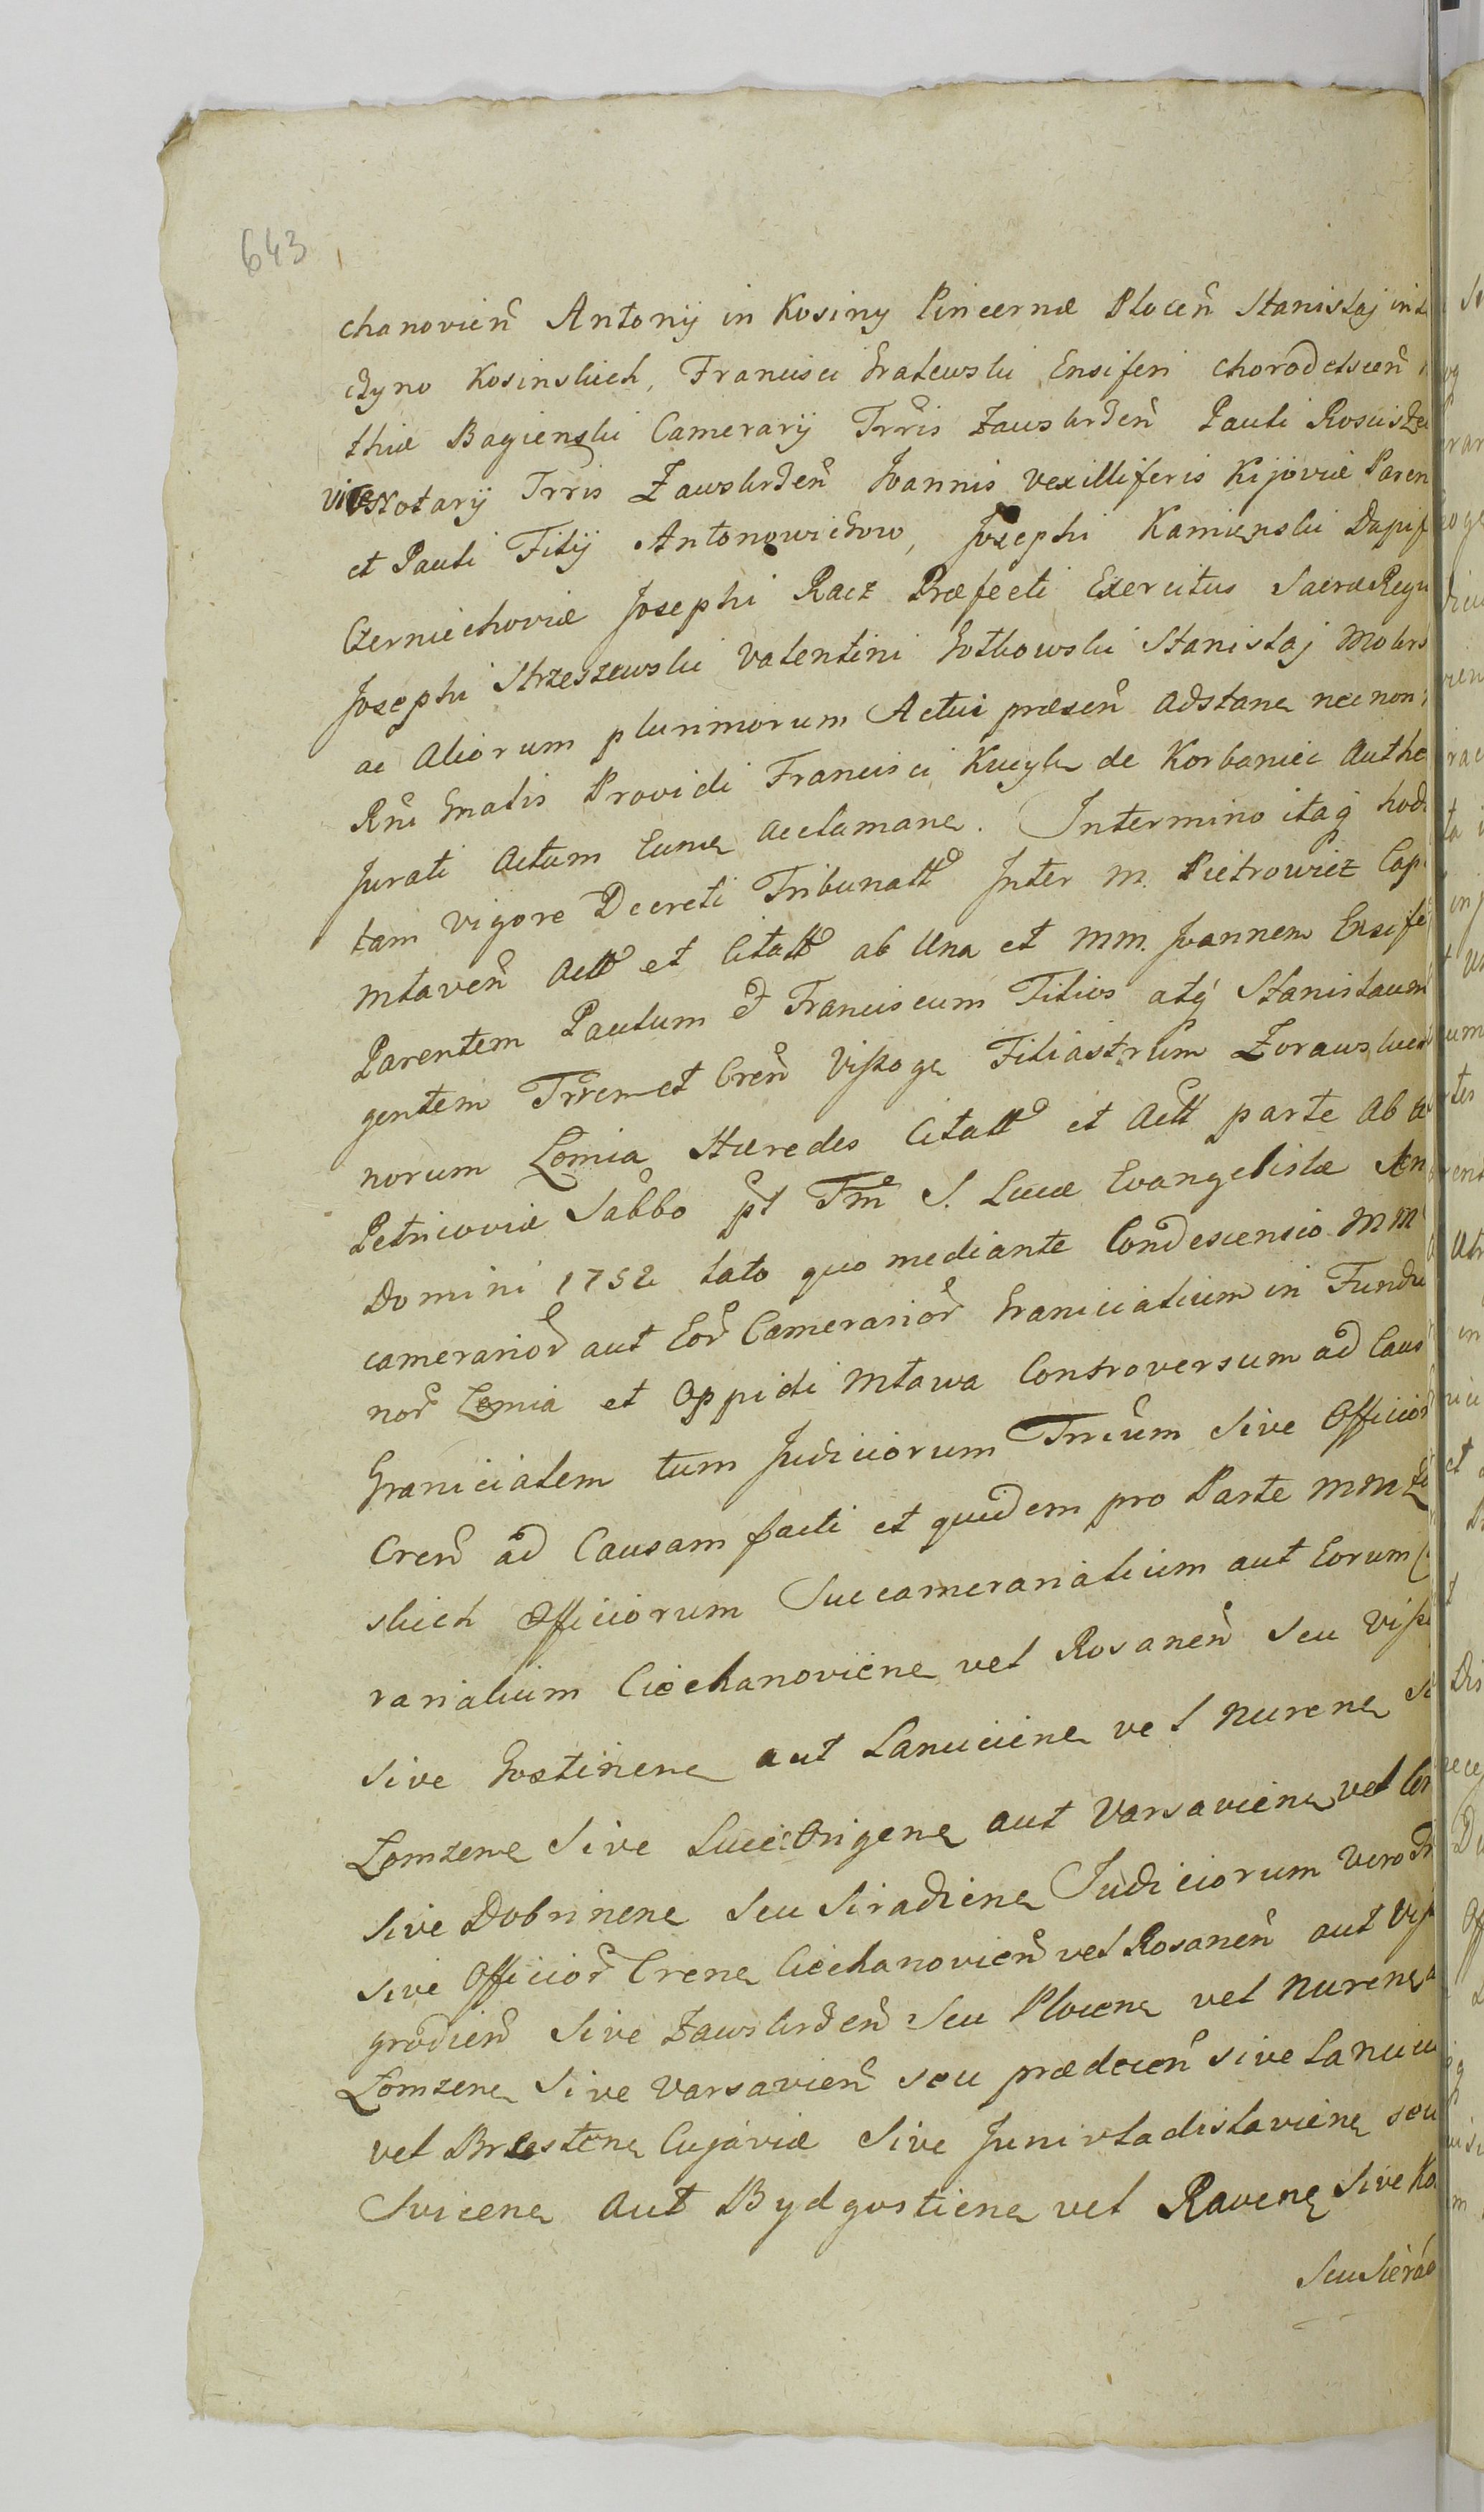 643
chanovien Antonij in Kosiny Pincernæ Plocen Stanislaj in
czyno Kosinskich, Francisci Gratewski Ensiferi chorodelscen
thiæ Bagienski Camerarij Trris Zawskrden Pauli Rosciszew
vicesNotarij Trris Zawskrden Joannis vexilliferis Kijoviæ Paren
et Pauli Filij Antonowiczow, Josephi Kamienski Dapif
Czerniechoviæ Josephi Racz Præfecti Exercitus Sacræ Regiæ
Josephi Strzeszewski Valentini Gołkowski Stanislaj Mokrs
ac Aliorum plurimorum Actui præsen adstane nec non
Rni Gnalis Providi Francisci Kucyk de Korbaniec Authe
Jurati Actum Eume acclamane. Intermino itaq hodi
tam vigore Decreti Tribunall Inter M. Pietrowicz Cap
Mlaven Act et Citatt ab Una et MM. Joannem Ensife
Parentem Paulum & Franciscum Filios atq Stanislaum
gentem Trrem et Cren Vissoge Filiastrum Zorawskich
norum Łomia Hæredes Citatt et Act parte Ab a
Petricoviæ Sabbo pt Fm S. Lucæ Evangelistæ An
Domini 1752 lato quo mediante Condescensio MM
camerarior aut Eor Camerarior Graniciatium in Fundu
nor Lomia et Oppidi Mlawa Controversum ad Caus
Granicialem tum Judiciorum Trrium Sive Officior
Cren ad Causam facti et quidem pro Parte MM Zo
skich Officiorum Succamerarialium aut Eorum
rarialium Ciechanoviene vel Rosanen seu Viss
sive Gostinene aut Lanciciene vel Nurene
Łomzene Sive Lucis Origene aut Varsaviene vel
Sive Dobrinene seu Siradiene Judiciorum Vero
sive Officior Crene Ciechanovien vel Rosanen aut Viss
grodien Sive Zawskrden seu Plocene vel Nurene
Łomzene Sive Varsavien seu prædecen sive Lancici
vel Brzestene Cujaviæ Sive Junivladislaviene seu
Svicene Aut Bydgostiene vel Ravene Sive Ko
Seu Sierad